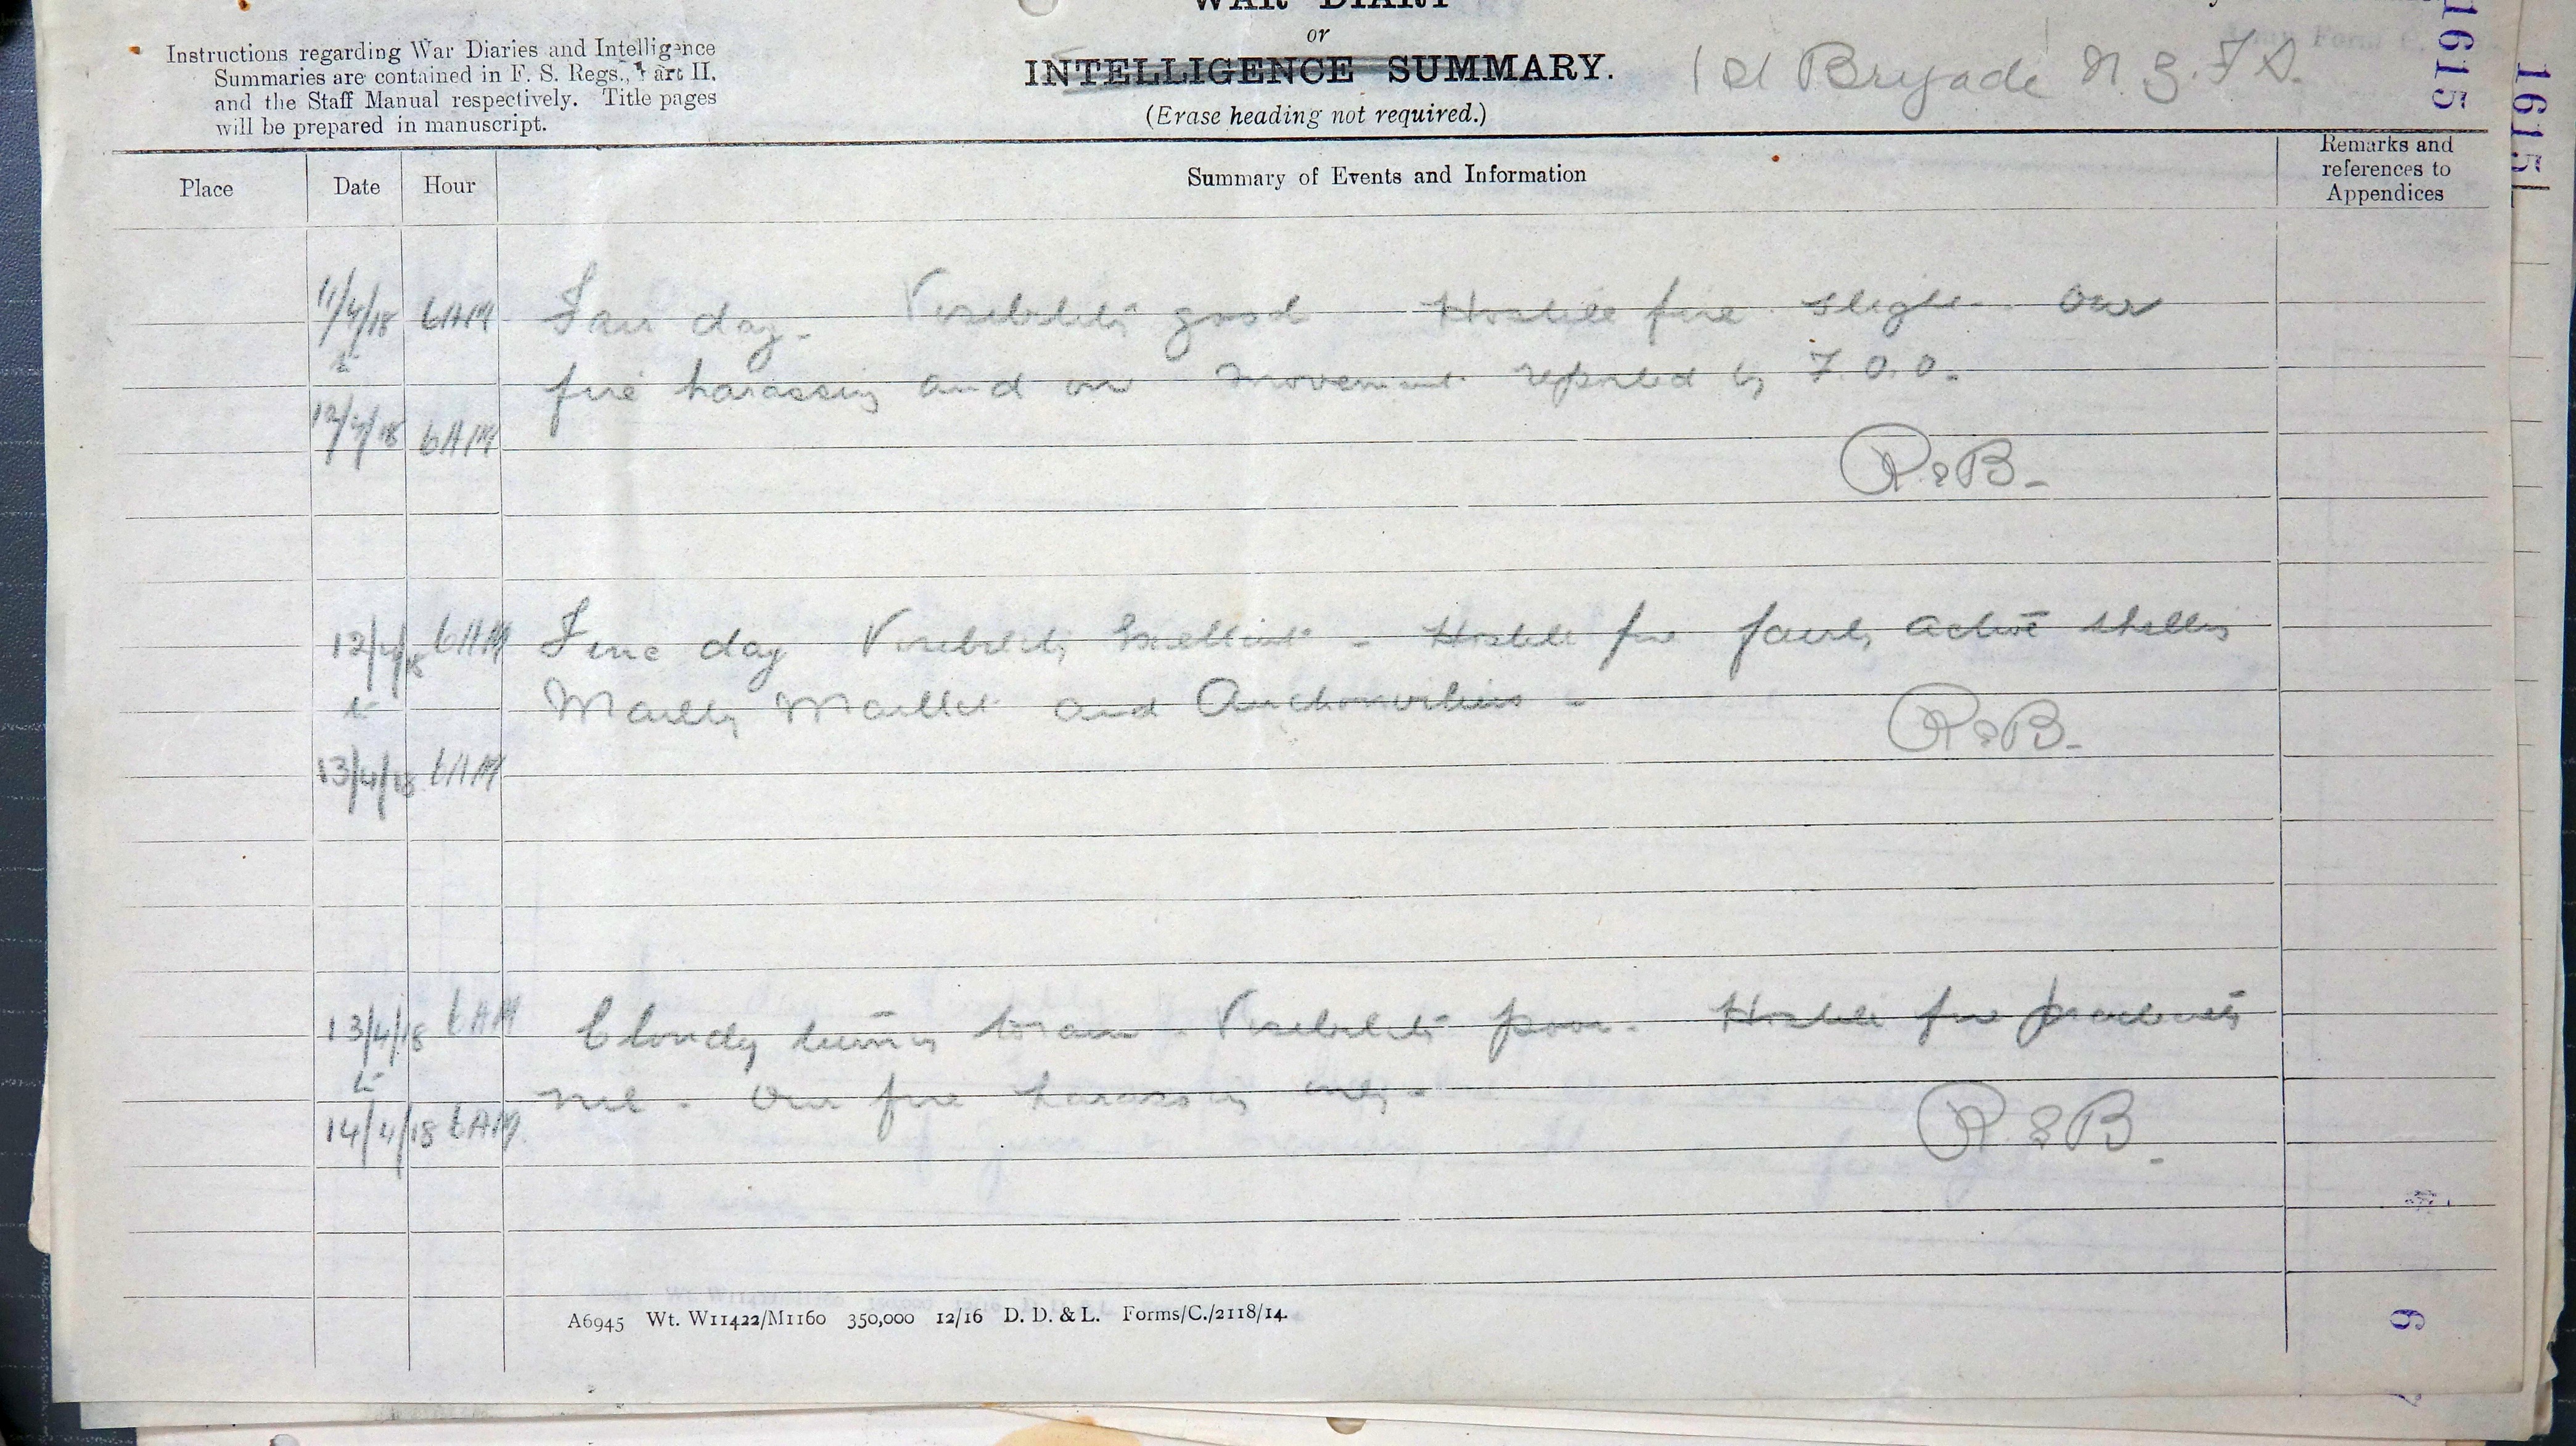 WAR DIARY
or
INTELLIGENCE SUMMARY.
(Erase heading not required.)
Instructions regarding War Diaries and Intelligence
Summaries are contained in F. S. Regs., Part II.
and the Staff Manual respectively. Title pages
will be prepared in manuscript.
1st Brigade N.Z.F.A.
1615
1615
Place Date Hour Summary of Events and Information Remarks and
references to
Appendices
11/4/18 6AM Fair day. Visibility good Hostile fire slight. Our
to fire harassing and on movement reported by F.O.O.
12/4/18 6AM
R.&B.
12/4/18 6AM Fine day Visibility Excellent - Hostile fire fairly active shelling
to Mailly Maillet and Auchonvillers -
R&B.
13/4/18 6AM
13/4/18 6AM Cloudy turning to rain. Visibility poor. Hostile fire practically
to nil. Our fire harassing only.
14/4/18 6AM
R.&B.
A6945 Wt. W11422/M1160 350,000 12/16 D. D. & L. Forms/C./2118/14.
6